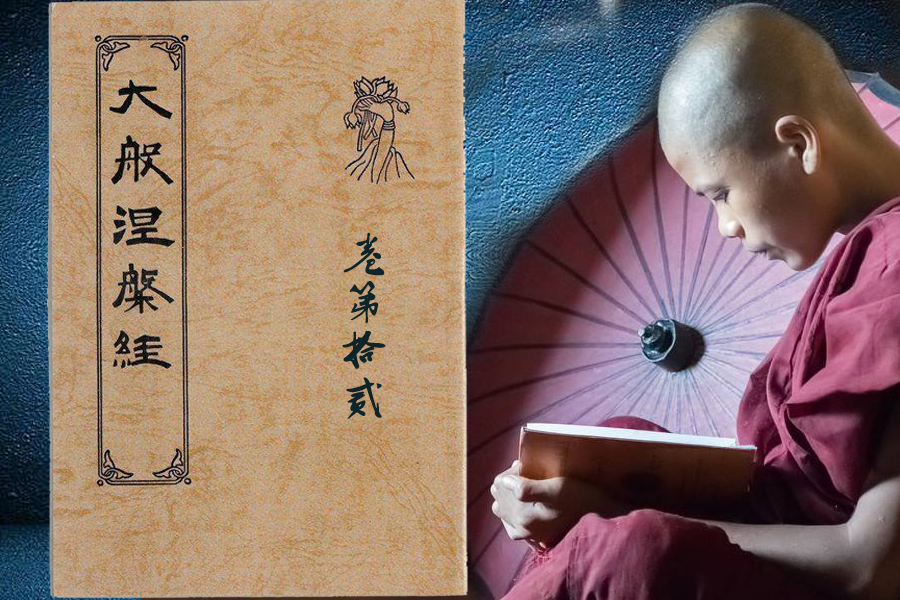 大般涅槃經
卷第拾貳